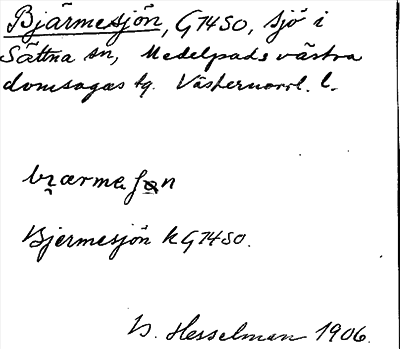 Bjärmesjön, G74SO, sjö i
Sättna sn, Medelpads västra
domsagas tg. Västernorrl. l.
Bjermesjön k G74SO.
B. Hesselman 1906.